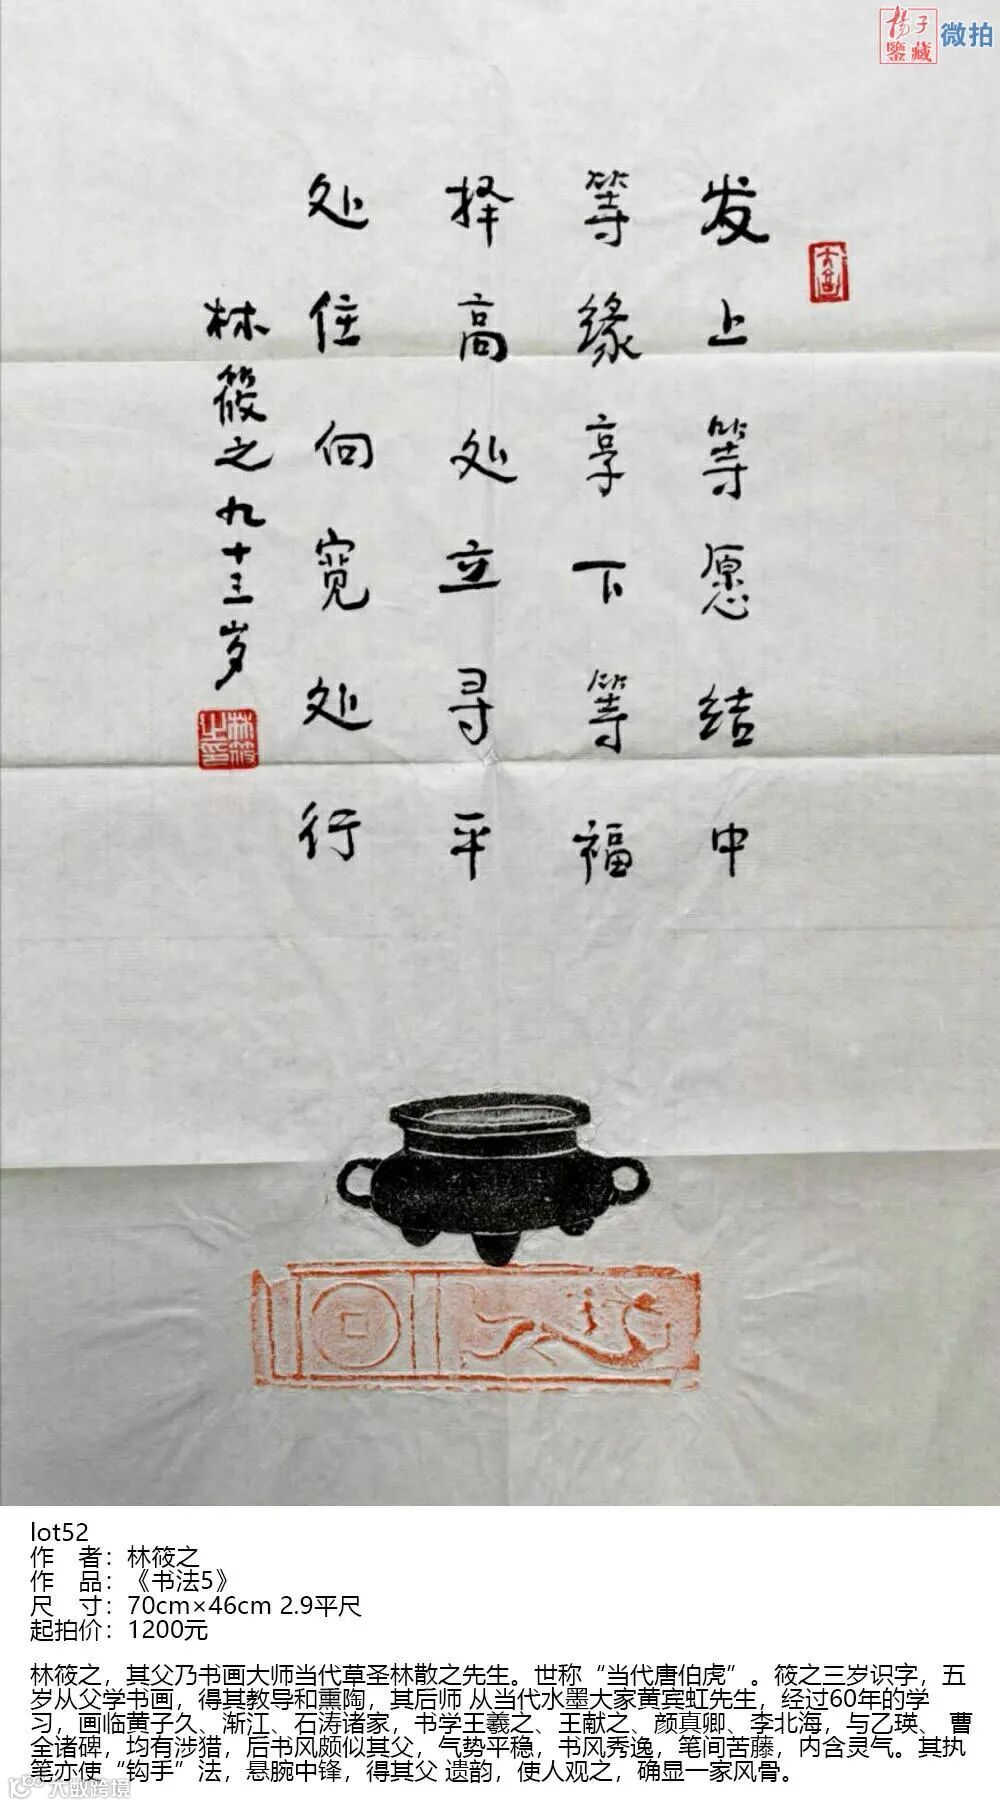 揚子
鑒藏
微拍
发上等愿结中
等缘享下等福
择高处立寻平
处住向宽处行
林筱之九十三岁
林筱之印
lot52
作 者：林筱之
作 品：《书法5》
尺 寸：70cm×46cm 2.9平尺
起拍价：1200元
林筱之，其父乃书画大师当代草圣林散之先生。世称“当代唐伯虎”。 筱之三岁识字，五
岁从父学书画，得其教导和熏陶，其后师 从当代水墨大家黄宾虹先生，经过60年的学
习，画临黄子久、渐江、石涛诸家，书学王羲之、王献之、颜真卿、李北海，与乙瑛、 曹
全诸碑，均有涉猎，后书风颇似其父，气势平稳，书风秀逸，笔间苦藤，内含灵气。其执
笔亦使“钩手”法，悬腕中锋，得其父 遗韵，使人观之，确显一家风骨。
大数跨境